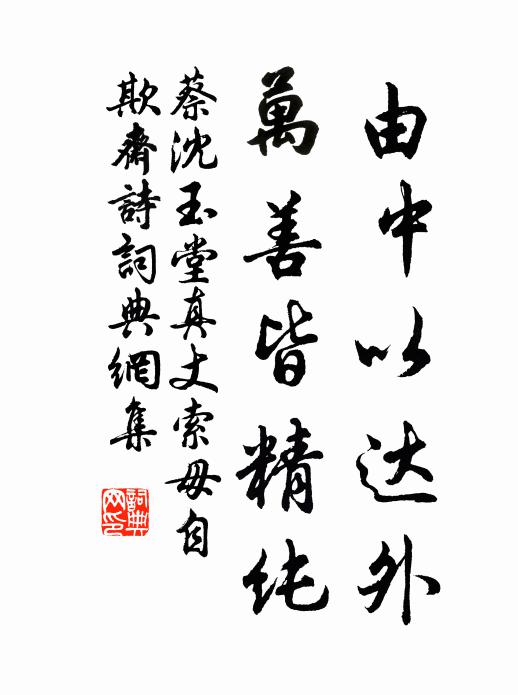 由中以达外
萬善皆精纯
蔡沈玉堂真丈索毋自
欺齋詩詞典網集
詞典
网印